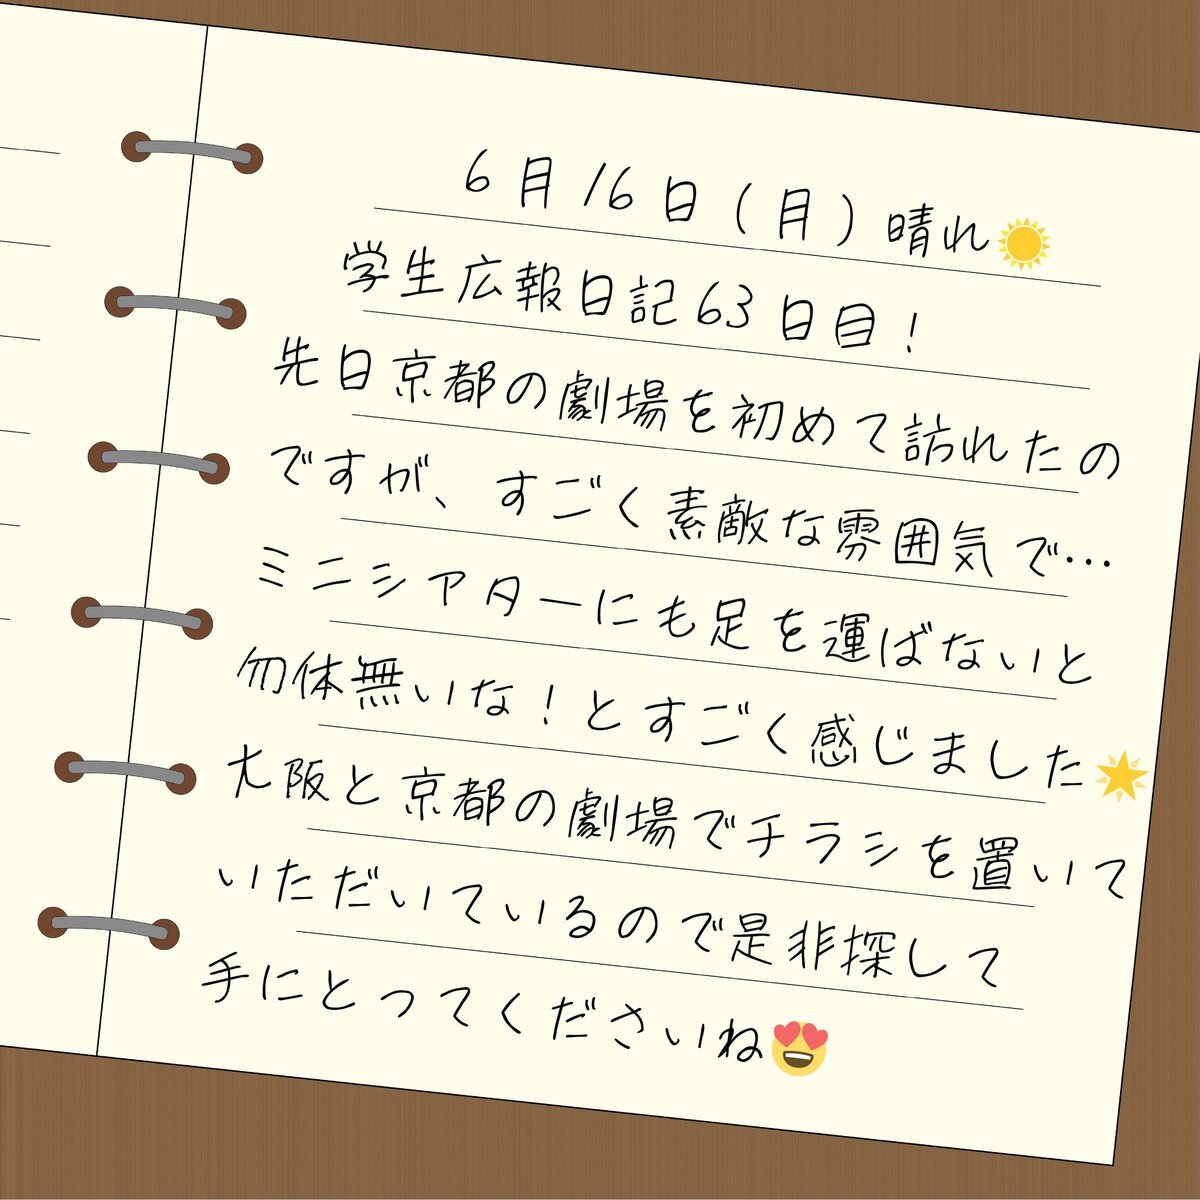 6月16日(月)晴れ☀️
学生広報日記63日目!
先日京都の劇場を初めて訪れたの
ですが、すごく素敵な雰囲気で…
ミニシアターにも足を運ばないと
勿体無いな!とすごく感じました🌟
大阪と京都の劇場でチラシを置いて
いただいているので是非探して
手にとってくださいね😍